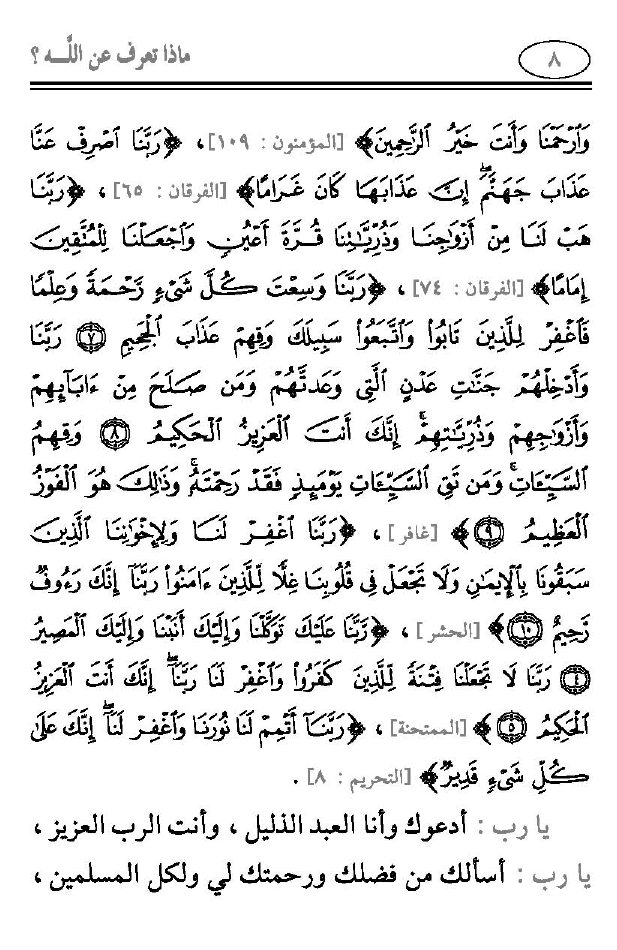 ٨ ماذا تعرف عن اللَّـه ؟
وَٱرۡحَمۡنَا وَأَنتَ خَيۡرُ ٱلرَّٰحِمِينَ﴾ [المؤمنون : ١٠٩]، ﴿رَبَّنَا ٱصۡرِفۡ عَنَّا
عَذَابَ جَهَنَّمَۖ إِنَّ عَذَابَهَا كَانَ غَرَامًا﴾ [الفرقان : ٦٥] ، ﴿رَبَّنَا
هَبۡ لَنَا مِنۡ أَزۡوَٰجِنَا وَذُرِّيَّٰتِنَا قُرَّةَ أَعۡيُنٖ وَٱجۡعَلۡنَا لِلۡمُتَّقِينَ
إِمَامًا﴾ [الفرقان : ٧٤] ، ﴿رَبَّنَا وَسِعۡتَ كُلَّ شَيۡءٖ رَّحۡمَةٗ وَعِلۡمٗا
فَٱغۡفِرۡ لِلَّذِينَ تَابُواْ وَٱتَّبَعُواْ سَبِيلَكَ وَقِهِمۡ عَذَابَ ٱلۡجَحِيمِ ٧ رَبَّنَا
وَأَدۡخِلۡهُمۡ جَنَّٰتِ عَدۡنٍ ٱلَّتِي وَعَدتَّهُمۡ وَمَن صَلَحَ مِنۡ ءَابَآئِهِمۡ
وَأَزۡوَٰجِهِمۡ وَذُرِّيَّٰتِهِمۡۚ إِنَّكَ أَنتَ ٱلۡعَزِيزُ ٱلۡحَكِيمُ ٨ وَقِهِمُ
ٱلسَّيِّـَٔاتِۚ وَمَن تَقِ ٱلسَّيِّـَٔاتِ يَوۡمَئِذٖ فَقَدۡ رَحِمۡتَهُۥۚ وَذَٰلِكَ هُوَ ٱلۡفَوۡزُ
ٱلۡعَظِيمُ ٩﴾ [غافر] ، ﴿رَبَّنَا ٱغۡفِرۡ لَنَا وَلِإِخۡوَٰنِنَا ٱلَّذِينَ
سَبَقُونَا بِٱلۡإِيمَٰنِ وَلَا تَجۡعَلۡ فِي قُلُوبِنَا غِلّٗا لِّلَّذِينَ ءَامَنُواْ رَبَّنَآ إِنَّكَ رَءُوفٞ
رَّحِيمٌ ١٠﴾ [الحشر] ، ﴿رَّبَّنَا عَلَيۡكَ تَوَكَّلۡنَا وَإِلَيۡكَ أَنَبۡنَا وَإِلَيۡكَ ٱلۡمَصِيرُ
٤ رَبَّنَا لَا تَجۡعَلۡنَا فِتۡنَةٗ لِّلَّذِينَ كَفَرُواْ وَٱغۡفِرۡ لَنَا رَبَّنَآۖ إِنَّكَ أَنتَ ٱلۡعَزِيزُ
ٱلۡحَكِيمُ ٥﴾ [الممتحنة] ، ﴿رَبَّنَآ أَتۡمِمۡ لَنَا نُورَنَا وَٱغۡفِرۡ لَنَآۖ إِنَّكَ عَلَىٰ
كُلِّ شَيۡءٖ قَدِيرٞ﴾ [التحريم : ٨] .
يا رب : أدعوك وأنا العبد الذليل ، وأنت الرب العزيز ،
يا رب : أسألك من فضلك ورحمتك لي ولكل المسلمين ،